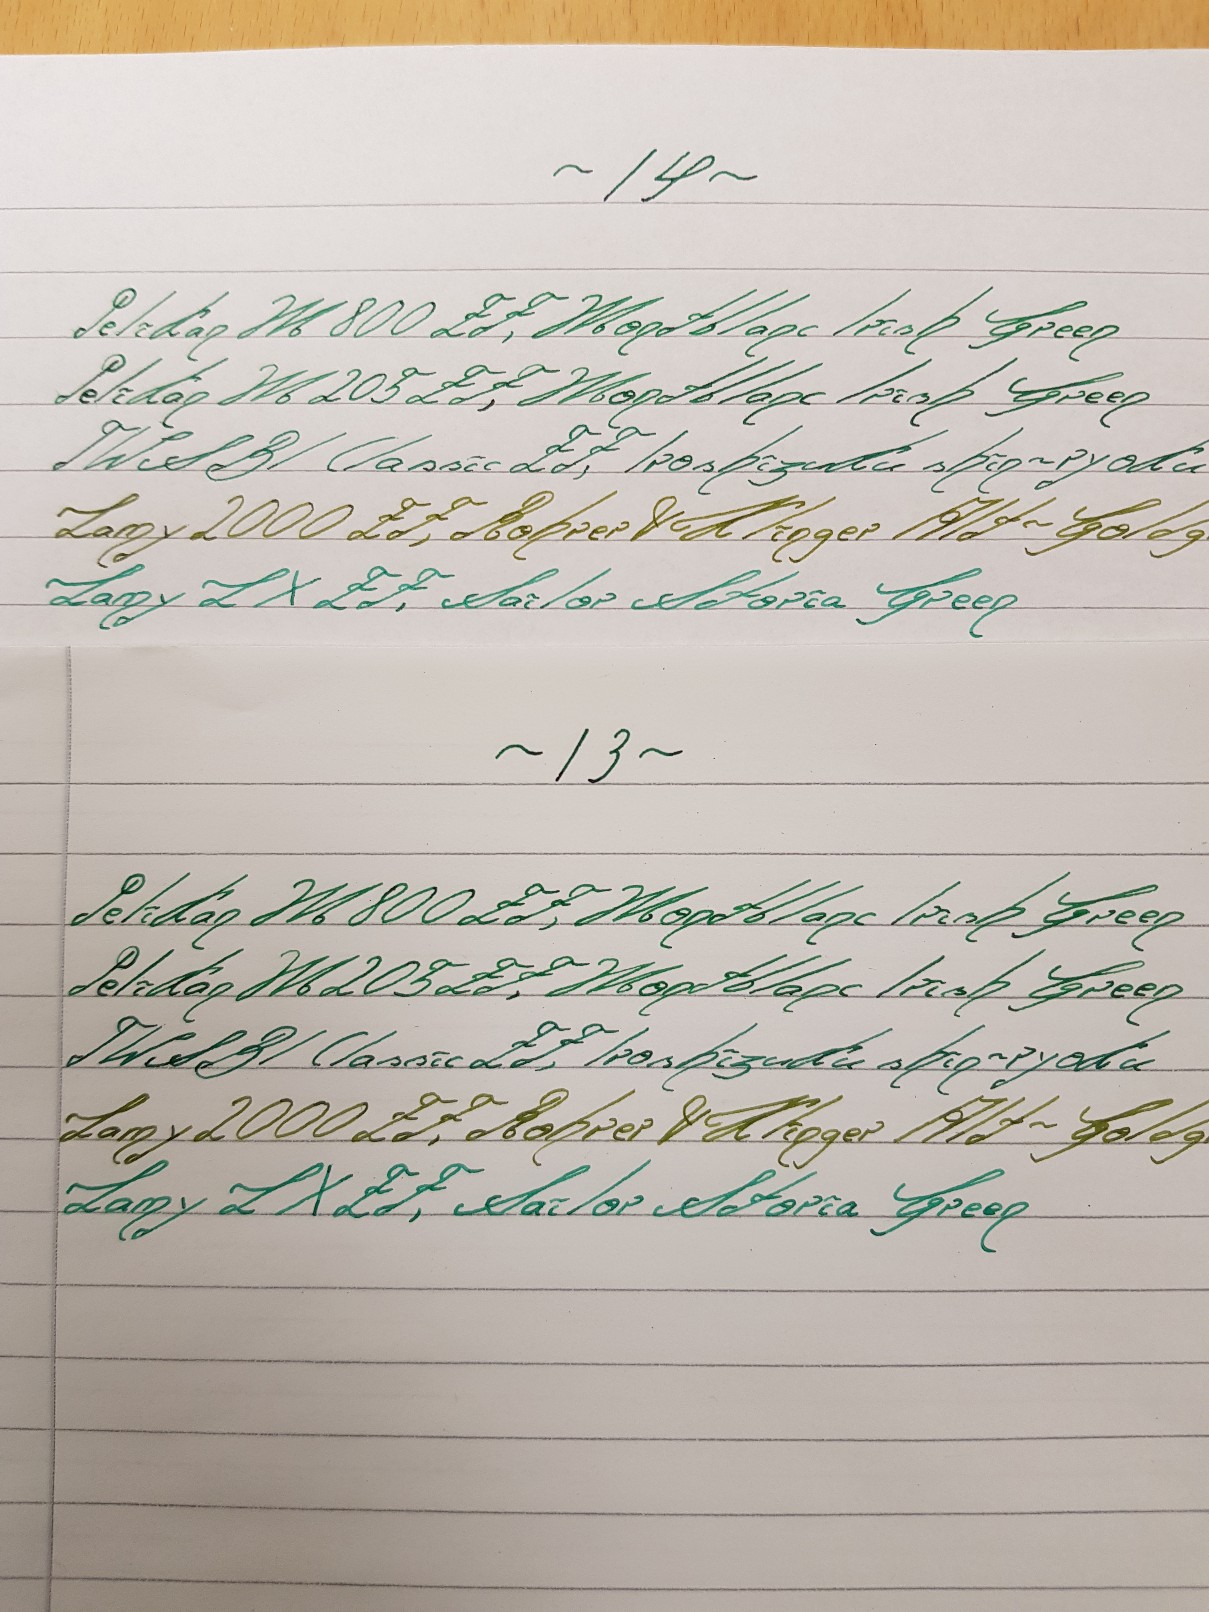 ~14~
Pelikan M800 EF, Montblanc Irish Green
Pelikan M205 EF, Montblanc Irish Green
TWSBI Classic EF, Iroshizuku shin-ryoku
Lamy 2000 EF, Rohrer & Klinger Alt-Goldg
Lamy LX EF, Sailor Storia Green
~13~
Pelikan M800 EF, Montblanc Irish Green
Pelikan M205 EF, Montblanc Irish Green
TWSBI Classic EF, Iroshizuku shin-ryoku
Lamy 2000 EF, Rohrer & Klinger Alt-Goldg
Lamy LX EF, Sailor Storia Green